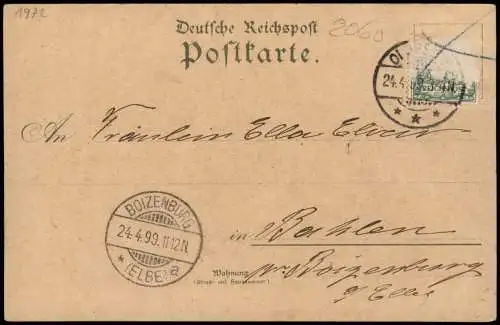 1972
Deutsche Reichspost
2060
Postkarte.
24.4.99.
An Fräulein Ella
BOIZENBURG
24.4.99.1112N.
(ELBE) a
in Bahlen
Wohnung
(Straße und Hausnummer)
pr. Boizenburg
a/ Elbe